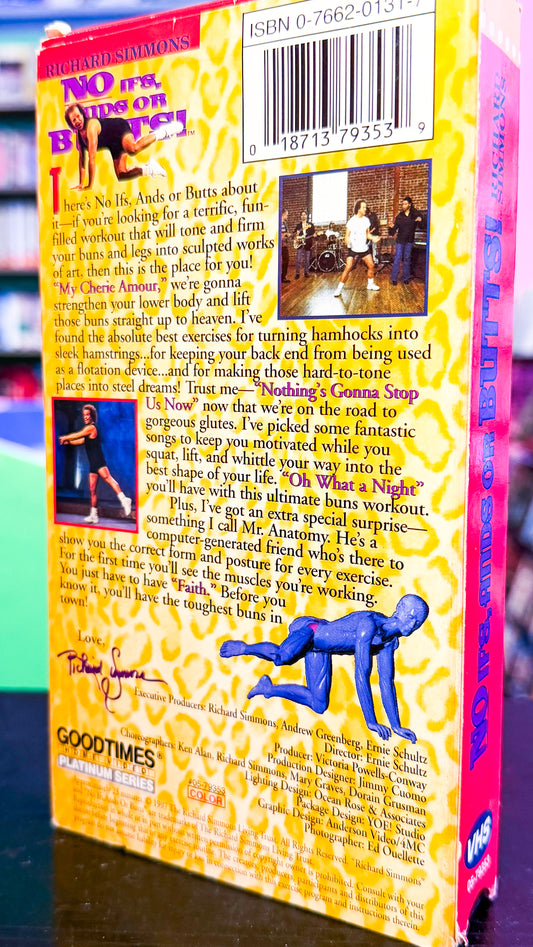 ISBN 0-7662-0131-7
0 18713 79353 9
RICHARD SIMMONS
NO IFS,
ANDS OR
BUTTS!™
There's No Ifs, Ands or Butts about
it—if you're looking for a terrific, fun-
filled workout that will tone and firm
your buns and legs into sculpted works
of art, then this is the place for you!
"My Cherie Amour," we're gonna
strengthen your lower body and lift
those buns straight up to heaven. I've
found the absolute best exercises for turning hamhocks into
sleek hamstrings...for keeping your back end from being used
as a flotation device...and for making those hard-to-tone
places into steel dreams! Trust me—"Nothing's Gonna Stop
Us Now" now that we're on the road to
gorgeous glutes. I've picked some fantastic
songs to keep you motivated while you
squat, lift, and whittle your way into the
best shape of your life. "Oh What a Night"
you'll have with this ultimate buns workout.
Plus, I've got an extra special surprise—
something I call Mr. Anatomy. He's a
computer-generated friend who's there to
show you the correct form and posture for every exercise.
For the first time you'll see the muscles you're working.
You just have to have "Faith." Before you
know it, you'll have the toughest buns in
town!
Love,
Richard Simmons
Executive Producers: Richard Simmons, Andrew Greenberg, Ernie Schultz
Director: Ernie Schultz
Producer: Victoria Powells-Conway
Production Designer: Jimmy Cuomo
Choreographers: Ken Alan, Richard Simmons, Mary Graves, Dorain Grusman
Lighting Design: Ocean Rose & Associates
Package Design: YOE! Studio
Graphic Design: Anderson Video/4MC
Photographer: Ed Ouellette
GOODTIMES®
HOME VIDEO
PLATINUM SERIES
#05-79353
COLOR
© 1997 The Richard Simmons Living Trust. All Rights Reserved. "Richard Simmons"
The Richard Simmons Living Trust.
copyright owner is prohibited. Consult with your
The creator, producers, participants and distributors of this
with the exercise program and instructions therein.
RICHARD SIMMONS
NO IFS, ANDS OR BUTTS!
VHS
05-79353